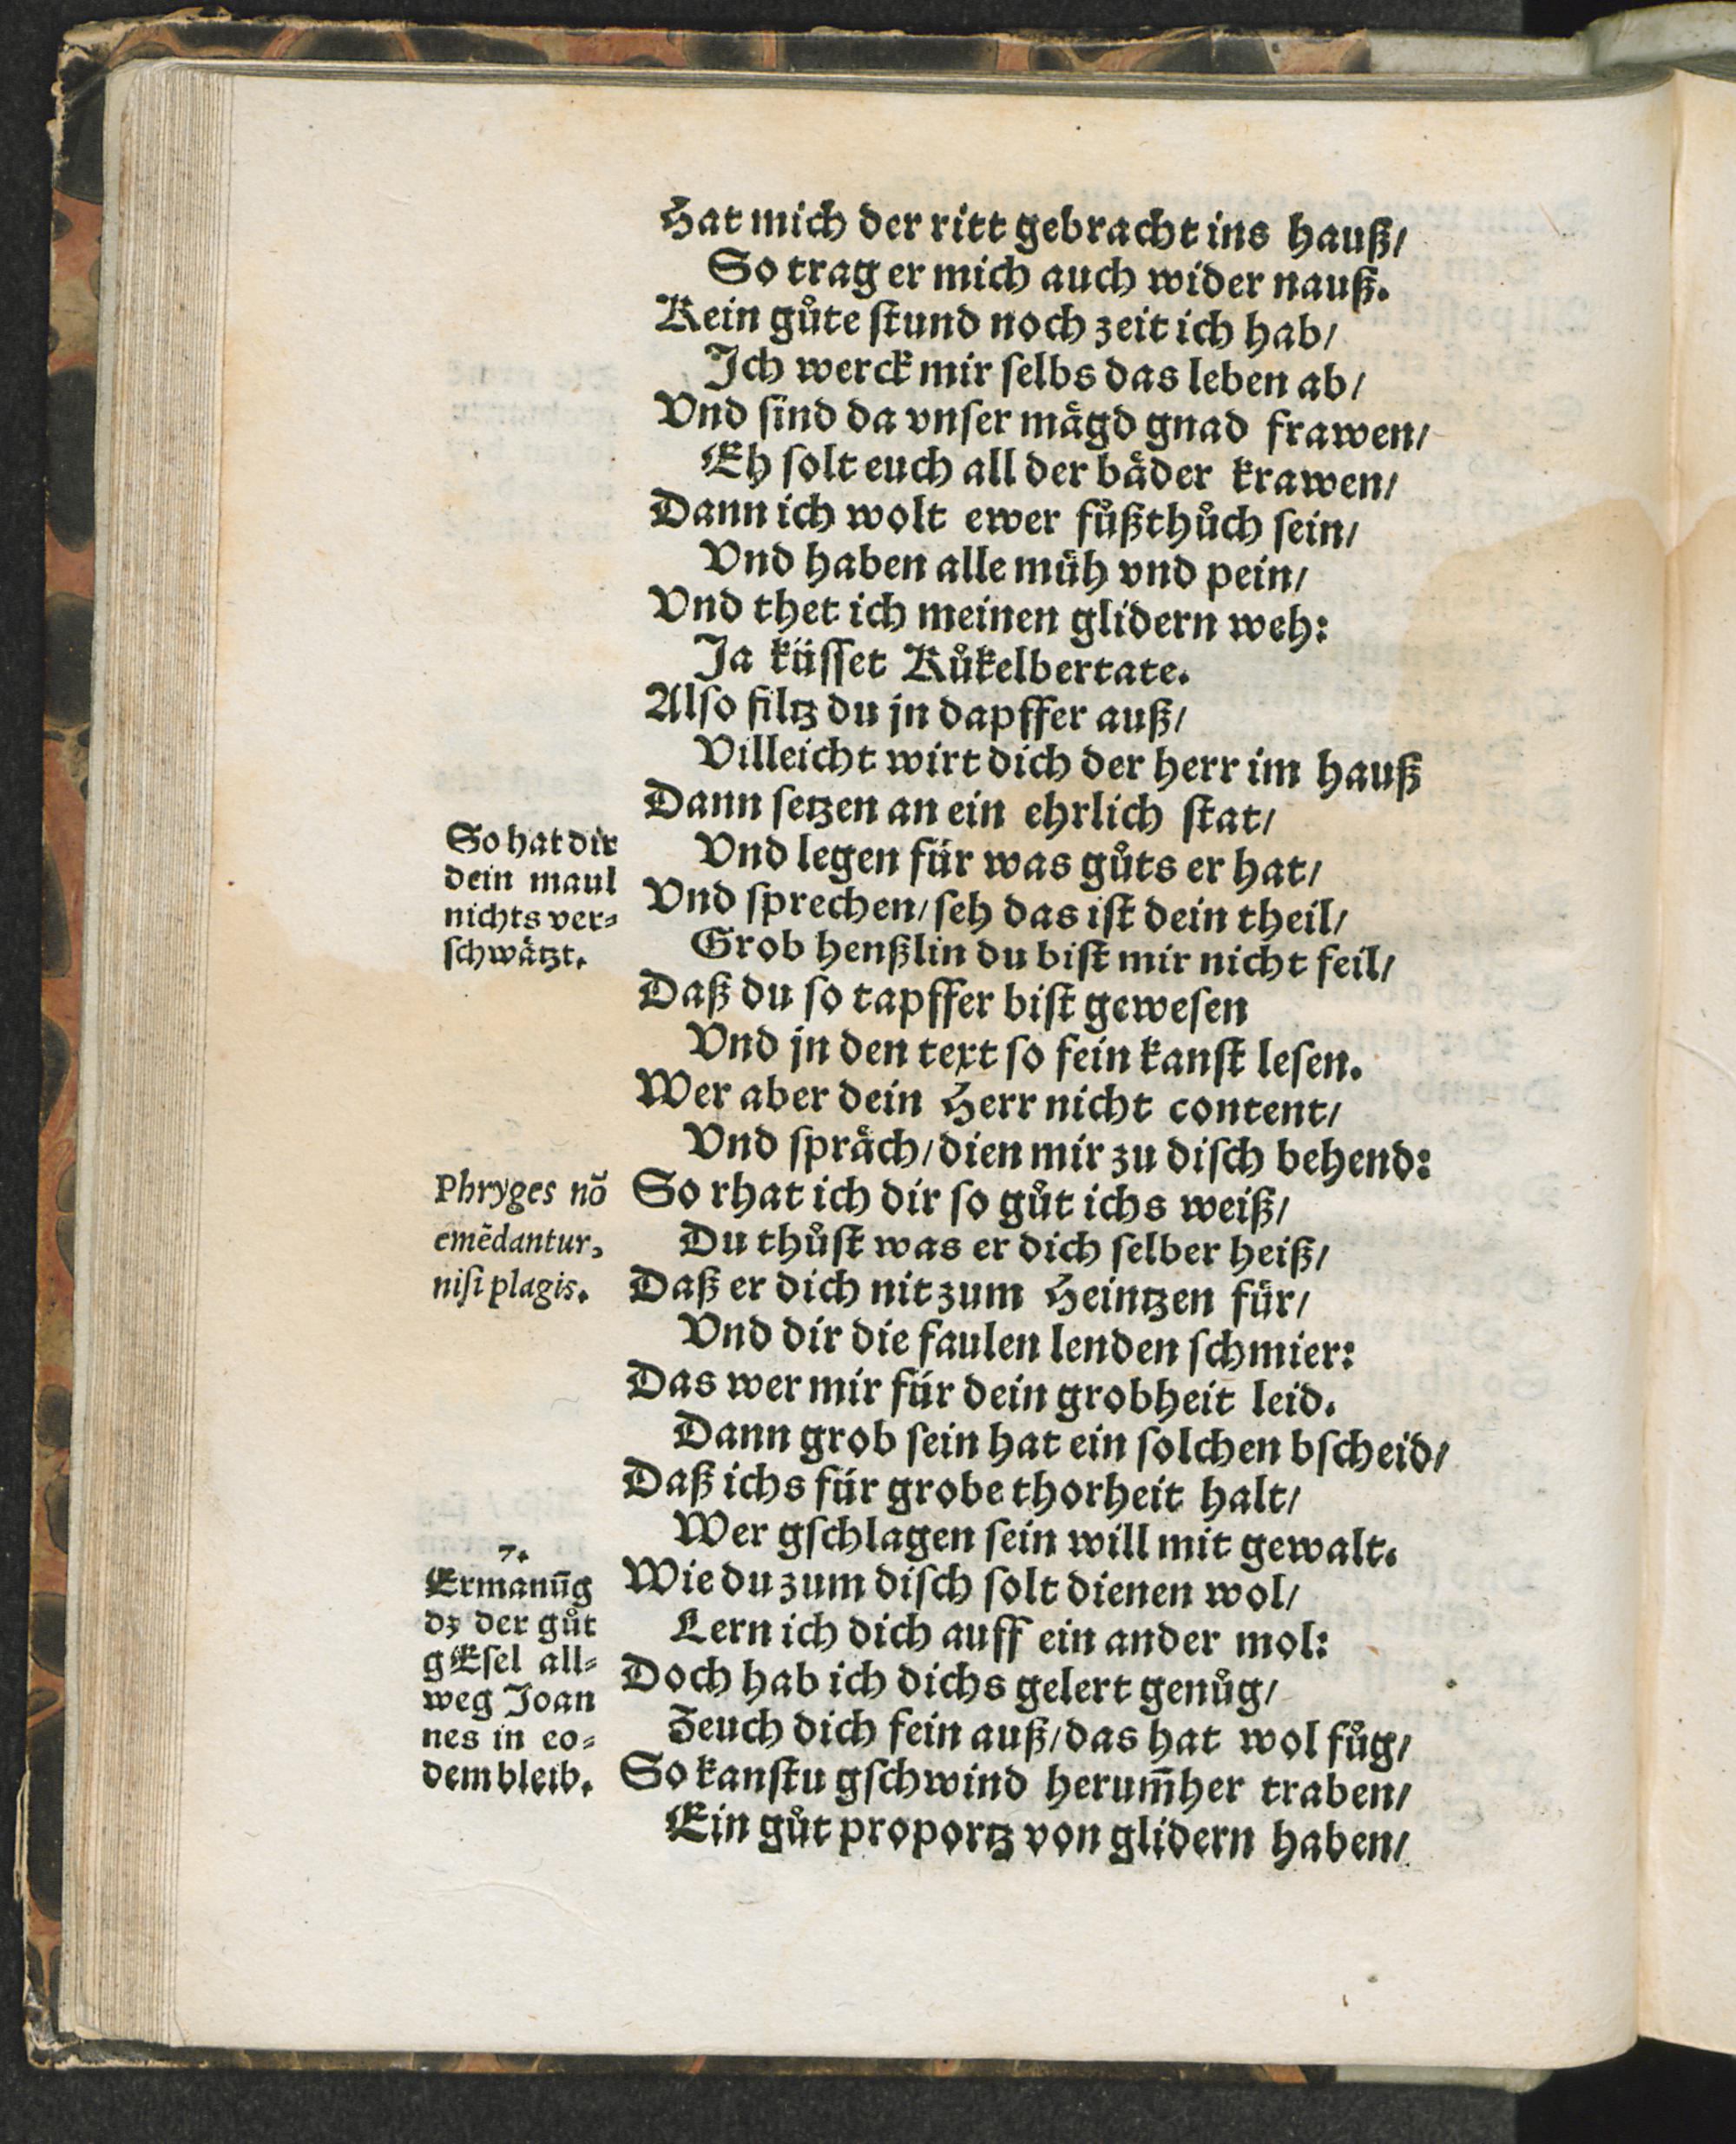 Hat mich der ritt gebracht ins hauß/
So trag er mich auch wider nauß.
Kein gůte ſtund noch zeit ich hab/
Ich werck mir ſelbs das leben ab/
Vnd ſind da vnſer mågd gnad frawen/
Eh ſolt euch all der båder krawen/
Dann ich wolt ewer fůßthůch ſein/
Vnd haben alle müh vnd pein/
Vnd thet ich meinen glidern weh:
Ja küſſet Kůkelbertate.
Alſo filtz du jn dapffer auß/
Villeicht wirt dich der herr im hauß
Dann ſetzen an ein ehrlich ſtat/
Vnd legen für was gůts er hat/
Vnd ſprechen/ſeh das iſt dein theil/
Grob henßlin du biſt mir nicht feil/
So hat dir
dein maul
nichts ver-
ſchwåtzt.
Daß du ſo tapffer biſt geweſen
Vnd jn den text ſo fein kanſt leſen.
Wer aber dein Herr nicht content/
Vnd ſpråch/dien mir zu diſch behend:
So rhat ich dir ſo gůt ichs weiß/
Du thůſt was er dich ſelber heiß/
Daß er dich nit zum Heintzen für/
Phryges nõ
emẽdantur,
niſi plagis.
Vnd dir die faulen lenden ſchmier:
Das wer mir für dein grobheit leid.
Dann grob ſein hat ein ſolchen bſcheid/
Daß ichs für grobe thorheit halt/
Wer gſchlagen ſein will mit gewalt.
Wie du zum diſch ſolt dienen wol/
Lern ich dich auff ein ander mol:
Doch hab ich dichs gelert genůg/
Zeuch dich fein auß/das hat wol fůg/
So kanſtu gſchwind herum̃her traben/
Ein gůt proportz von glidern haben/
7.
Ermanũg
dz der gůt
gEſel all-
weg Joan
nes in eo-
dem bleib.